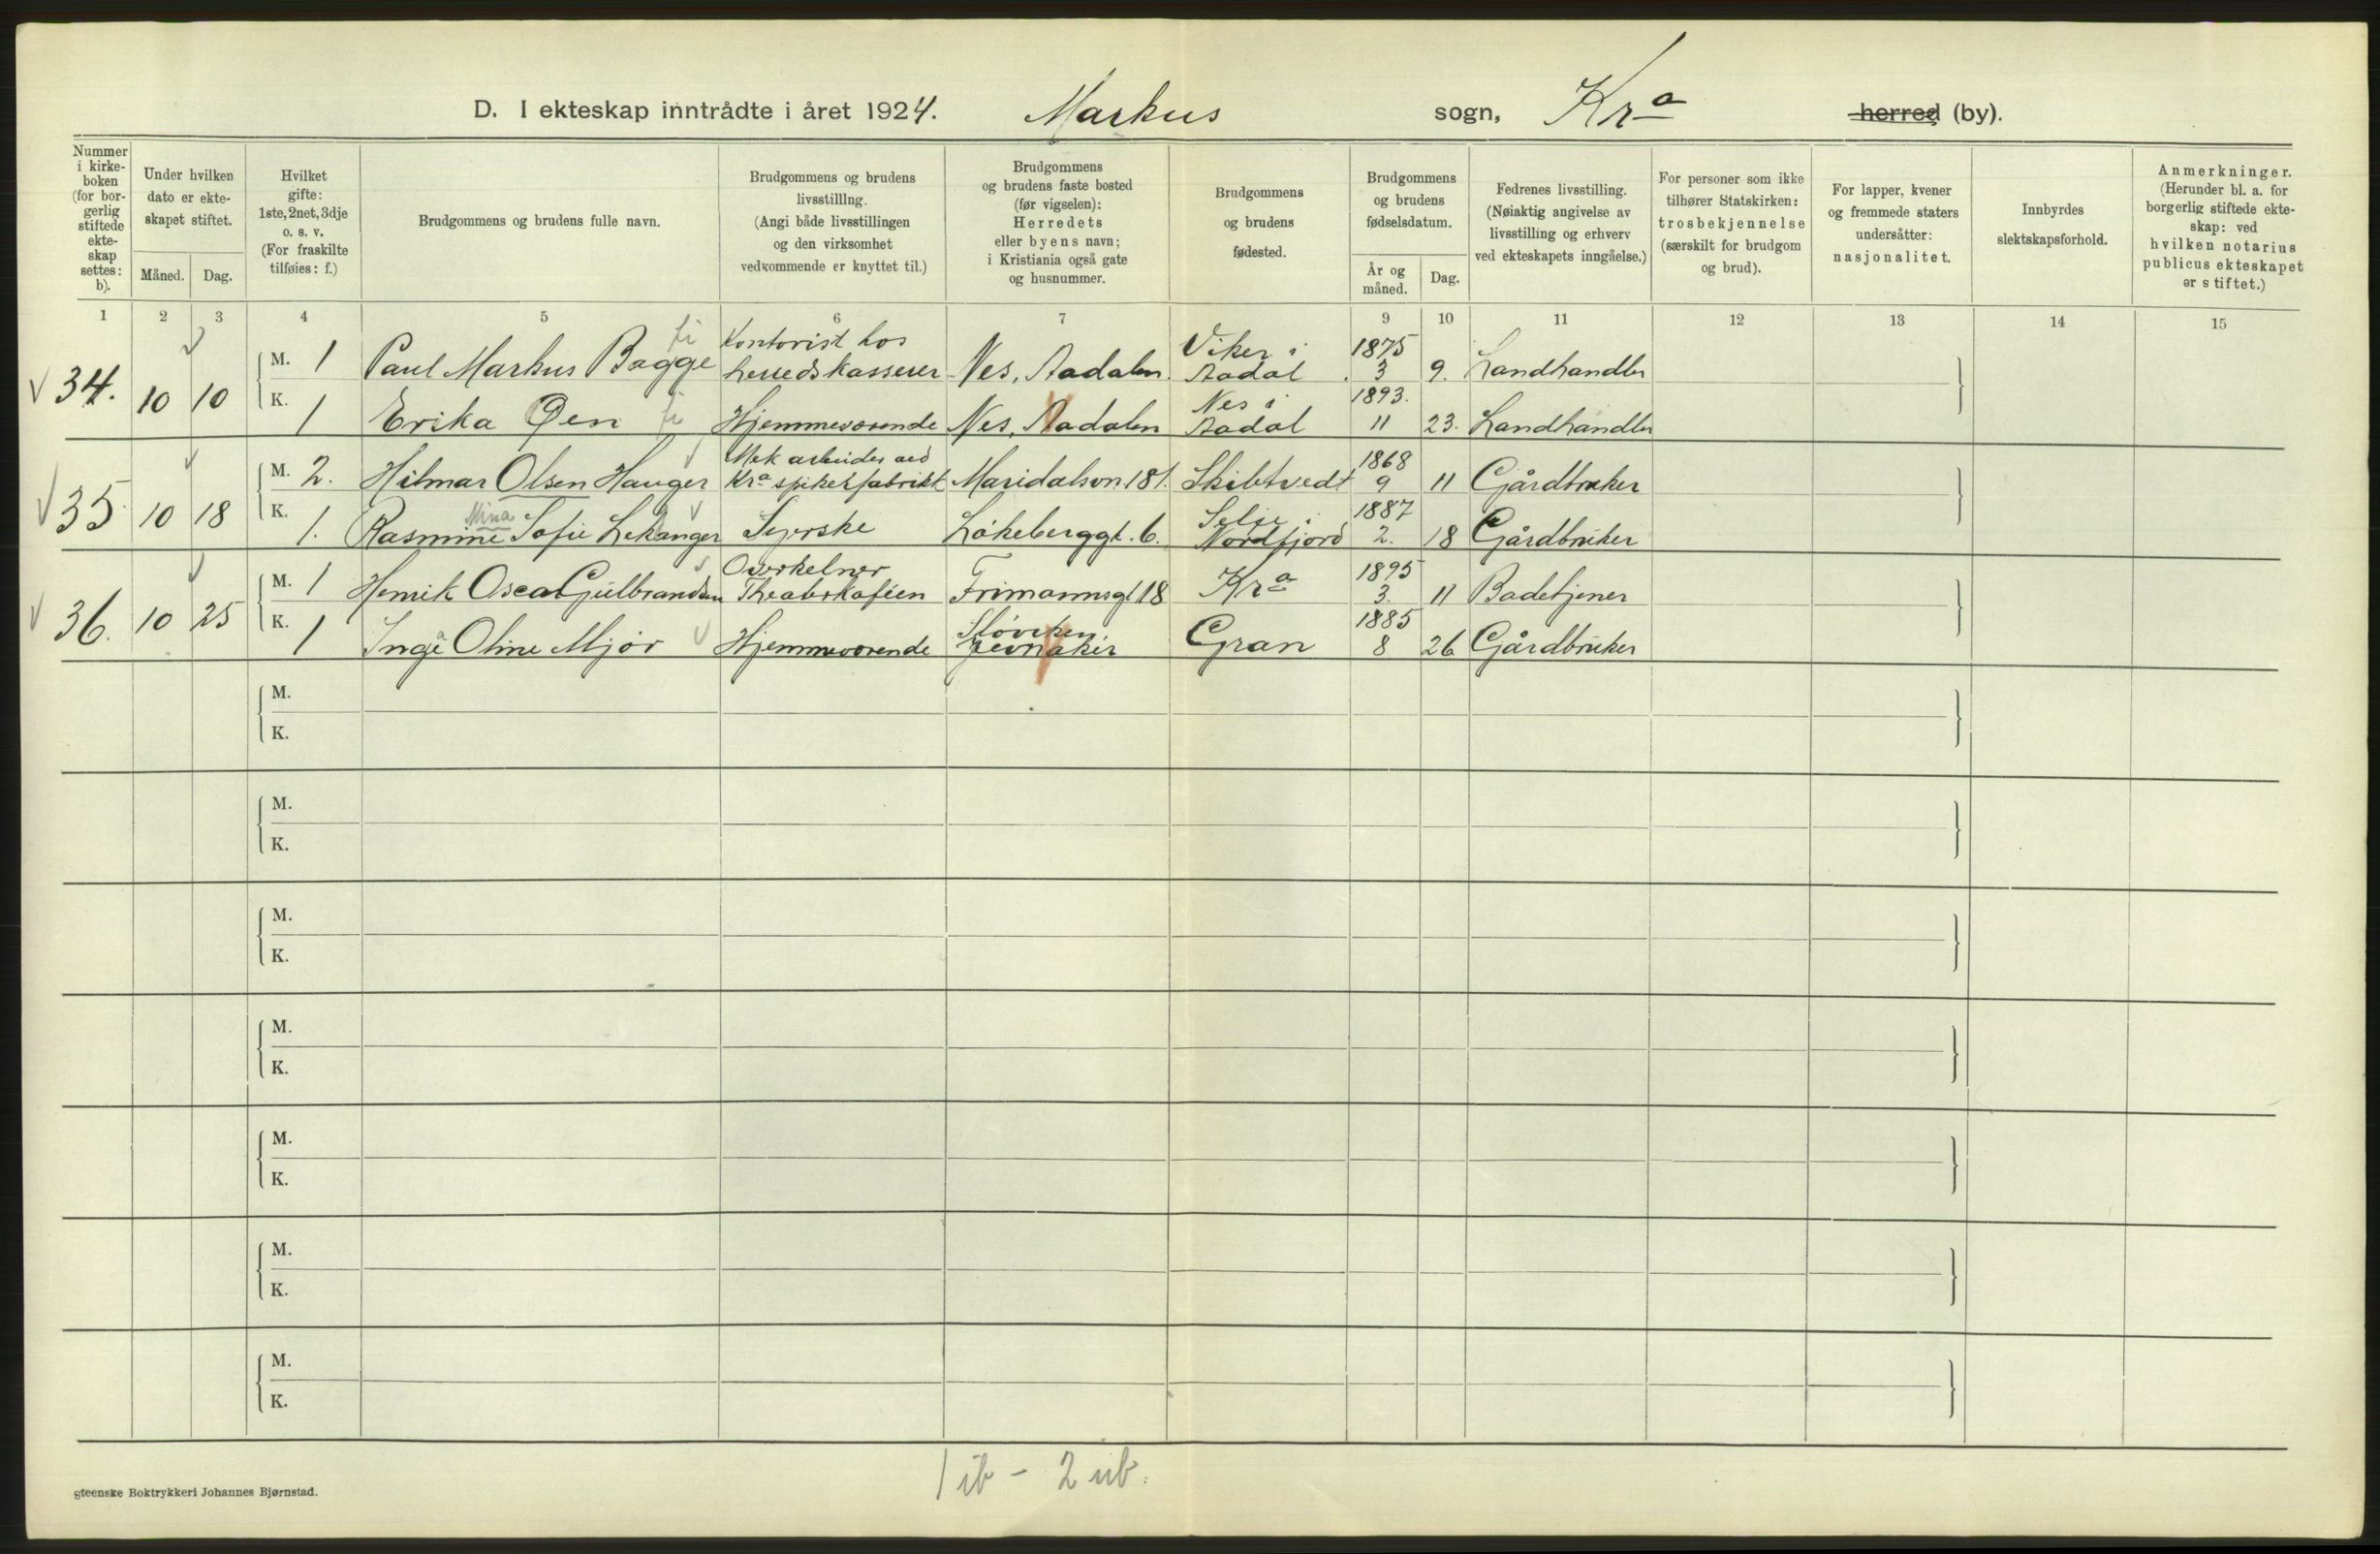 D. I ekteskap inntrådte i året 1924. Markus sogn, Kra herred (by).
Nummer i kirke-boken (for bor-gerlig stiftede ekte-skap settes: b).
Under hvilken dato er ekte-skapet stiftet.
Måned. Dag.
Hvilket gifte: 1ste, 2net, 3dje o. s. v. (For fraskilte tilføies: f.)
Brudgommens og brudens fulle navn.
Brudgommens og brudens livsstilllng. (Angi både livsstillingen og den virksomhet vedkommende er knyttet til.)
Brudgommens og brudens faste bosted (før vigselen): Herredets eller byens navn; i Kristiania også gate og husnummer.
Brudgommens og brudens fødested.
Brudgommens og brudens fødselsdatum.
År og måned. Dag.
Fedrenes livsstilling. (Nøiaktig angivelse av livsstilling og erhverv ved ekteskapets inngåelse.)
For personer som ikke tilhører Statskirken: trosbekjennelse (særskilt for brudgom og brud).
For lapper, kvener og fremmede staters undersåtter: nasjonalitet.
Innbyrdes slektskapsforhold.
Anmerkninger. (Herunder bl. a. for borgerlig stiftede ekte-skap: ved hvilken notarius publicus ekteskapet er stiftet.)
1 2 3 4 5 6 7 9 10 11 12 13 14 15
34. 10 10 M. 1 Paul Markus Bagge Kontorist hos herredskasserer Nes, Aadalen. Viker i Aadal 1875 3 9. Landhandler
K. 1 Erika Øen Hjemmeværende Nes, Aadalen Nes i Aadal 1893. 11 23. Landhandler
35 10 18 M. 2. Hilmar Olsen Hauger Mek arbeider ved Kra spikerfabrikk Maridalsvn 181. Skibtvedt 1868 9 11 Gårdbruker
K. 1. Rasmine Mina Sofie Lekanger Syerske Løkeberggt. 6. Selje i Nordfjord 1887 2. 18 Gårdbruker
36. 10 25 M. 1 Henrik Oscar Gulbrandsen Overkelner Theaterkafeen Frimannsgt 18 Kra 1895 3. 11 Badetjener
K. 1 Inga Oline Mjør Hjemmeværende Jevnaker Gran 1885 8 26 Gårdbruker
M.
K.
M.
K.
M.
K.
M.
K.
M.
K.
M.
K.
M.
K.
1 ib - 2 ub.
gteenske Boktrykkeri Johannes Bjørnstad.